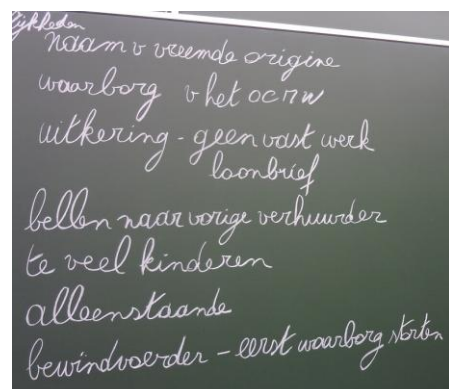 naam v vreemde origine
waarborg v het OCMW
uitkering - geen vast werk
loonbrief
bellen naar vorige verhuurder
te veel kinderen
alleenstaande
bewindvoerder - eerst waarborg storten